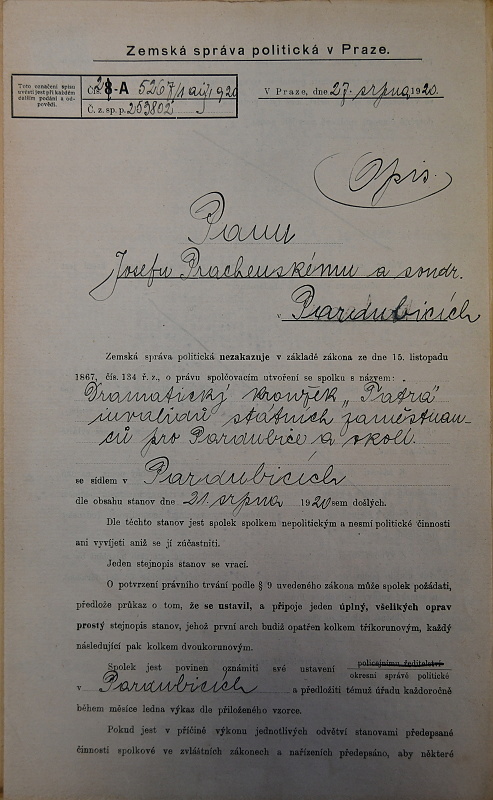 Zemská správa politická v Praze.
Toto označení spisu
uvésti jest při každém
dalším podání a od-
povědi.
Č. 21-A 5267/1 aij 1920
Č. z. sp. p. 253802
V Praze, dne 27. srpna 1920.
Opis.
Panu
Josefu Prachenskému a soudr.
v Pardubicích
Zemská správa politická nezakazuje v základě zákona ze dne 15. listopadu
1867, čís. 134 ř. z., o právu spolčovacím utvoření se spolku s názvem:
Dramatický kroužek „Tatra"
invalidů státních zaměstnan-
ců pro Pardubice a okolí.
se sídlem v Pardubicích
dle obsahu stanov dne 21. srpna 1920 sem došlých.
Dle těchto stanov jest spolek spolkem nepolitickým a nesmí politické činnosti
ani vyvíjeti aniž se jí zúčastniti.
Jeden stejnopis stanov se vrací.
O potvrzení právního trvání podle § 9 uvedeného zákona může spolek požádati,
předlože průkaz o tom, že se ustavil, a připoje jeden úplný, všelikých oprav
prostý stejnopis stanov, jehož první arch budiž opatřen kolkem tříkorunovým, každý
následující pak kolkem dvoukorunovým.
Spolek jest povinen oznámiti své ustavení policejnímu ředitelství
okresní správě politické
v Pardubicích a předložiti témuž úřadu každoročně
během měsíce ledna výkaz dle přiloženého vzorce.
Pokud jest v příčině výkonu jednotlivých odvětví stanovami předepsané
činnosti spolkové ve zvláštních zákonech a nařízeních předepsáno, aby některé